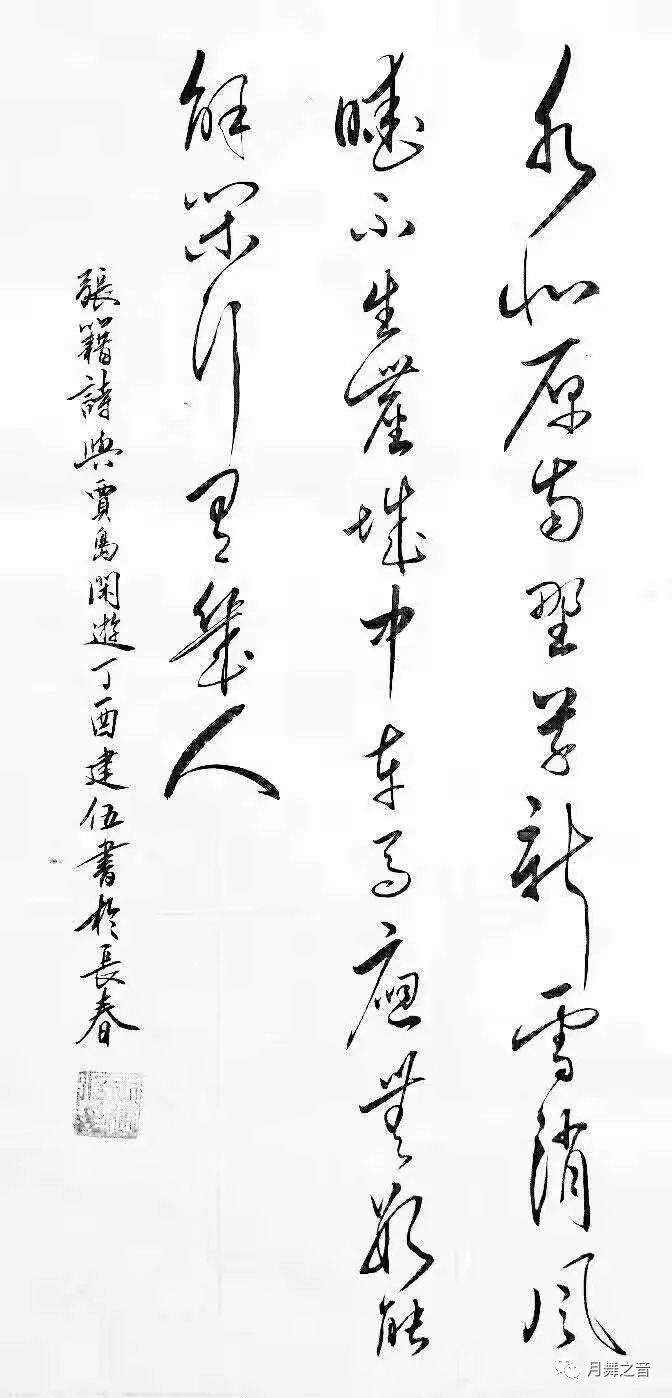 水北原南野草新雪消風
暖不生塵城中車馬應無數能
解閑行有幾人
張籍詩與賈島閑遊丁酉建伍書於長春
月舞之音